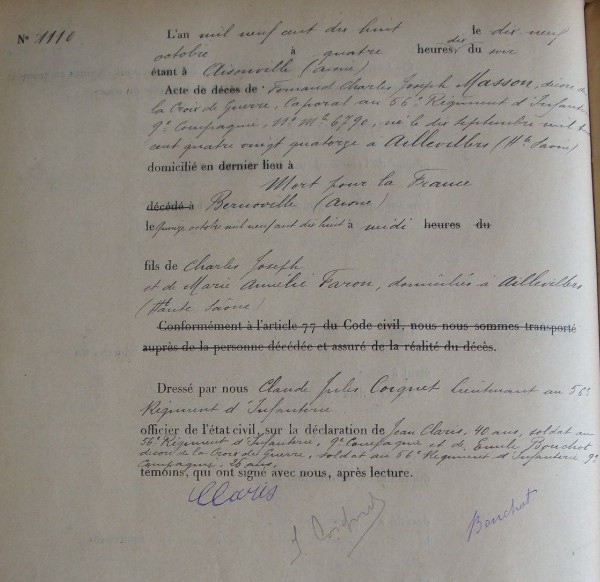 N° 1110
L'an mil neuf cent dix huit le dix neuf
octobre à quatre heures dix du soir
étant à Aisonville (Aisne)
Acte de décès de Fernand Charles Joseph Masson, décoré de
la Croix de Guerre, Caporal au 56e Régiment d'Infanterie
9e Compagnie, N° Mle 6790, né le dix septembre mil huit
cent quatre vingt quatorze à Aillevillers (Hte Saône)
domicilié en dernier lieu à
Mort pour la France
décédé à Bernoville (Aisne)
le quinze octobre mil neuf cent dix huit à midi heures du
fils de Charles Joseph
et de Marie Amélie Faron, domiciliés à Aillevillers
(Haute Saône)
Conformément à l'article 77 du Code civil, nous nous sommes transporté
auprès de la personne décédée et assuré de la réalité du décès.
Dressé par nous Claude Jules Coignet Lieutenant au 56e
Régiment d'Infanterie
officier de l'état civil, sur la déclaration de Jean Claris, 40 ans, soldat au
56e Régiment d'Infanterie, 9e Compagnie et de Emile Bouchot
décoré de la Croix de Guerre, soldat au 56e Régiment d'Infanterie 9e
Compagnie, 26 ans,
témoins, qui ont signé avec nous, après lecture.
Claris
J Coignet
Bouchot